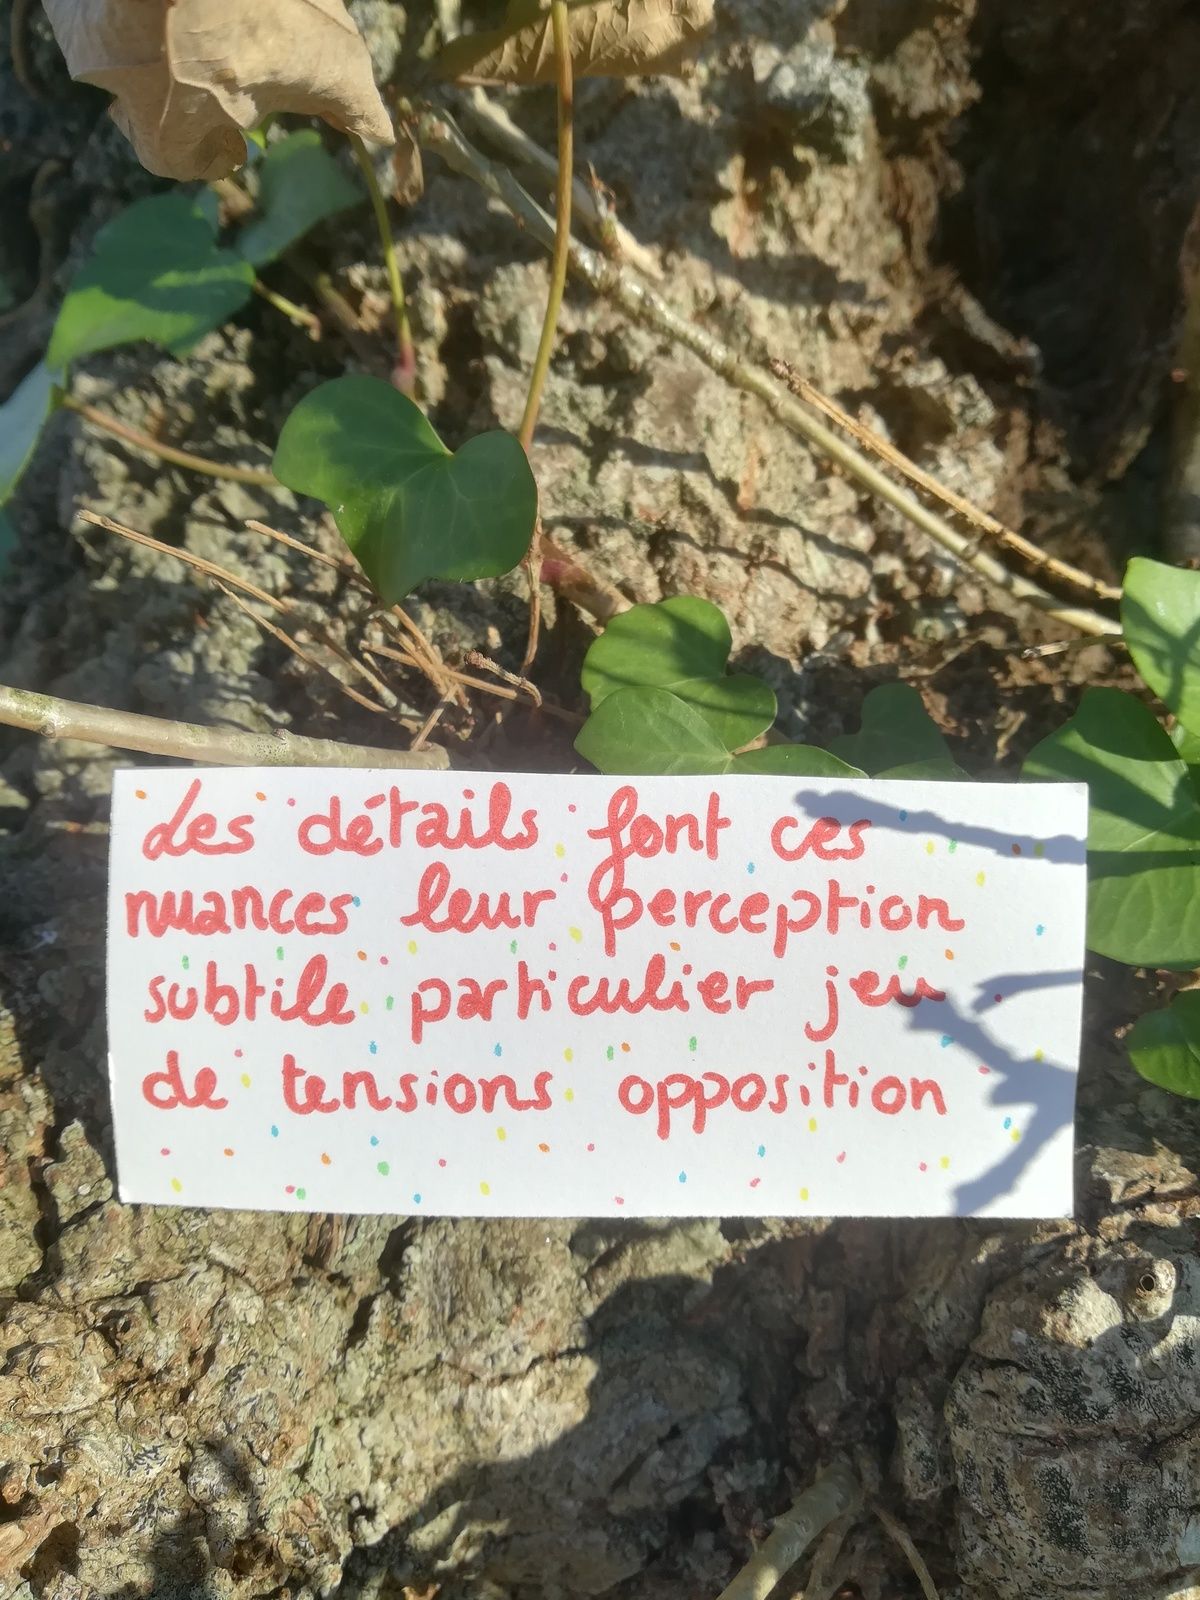 Les détails font ces
nuances leur perception
subtile particulier jeu
de tensions opposition